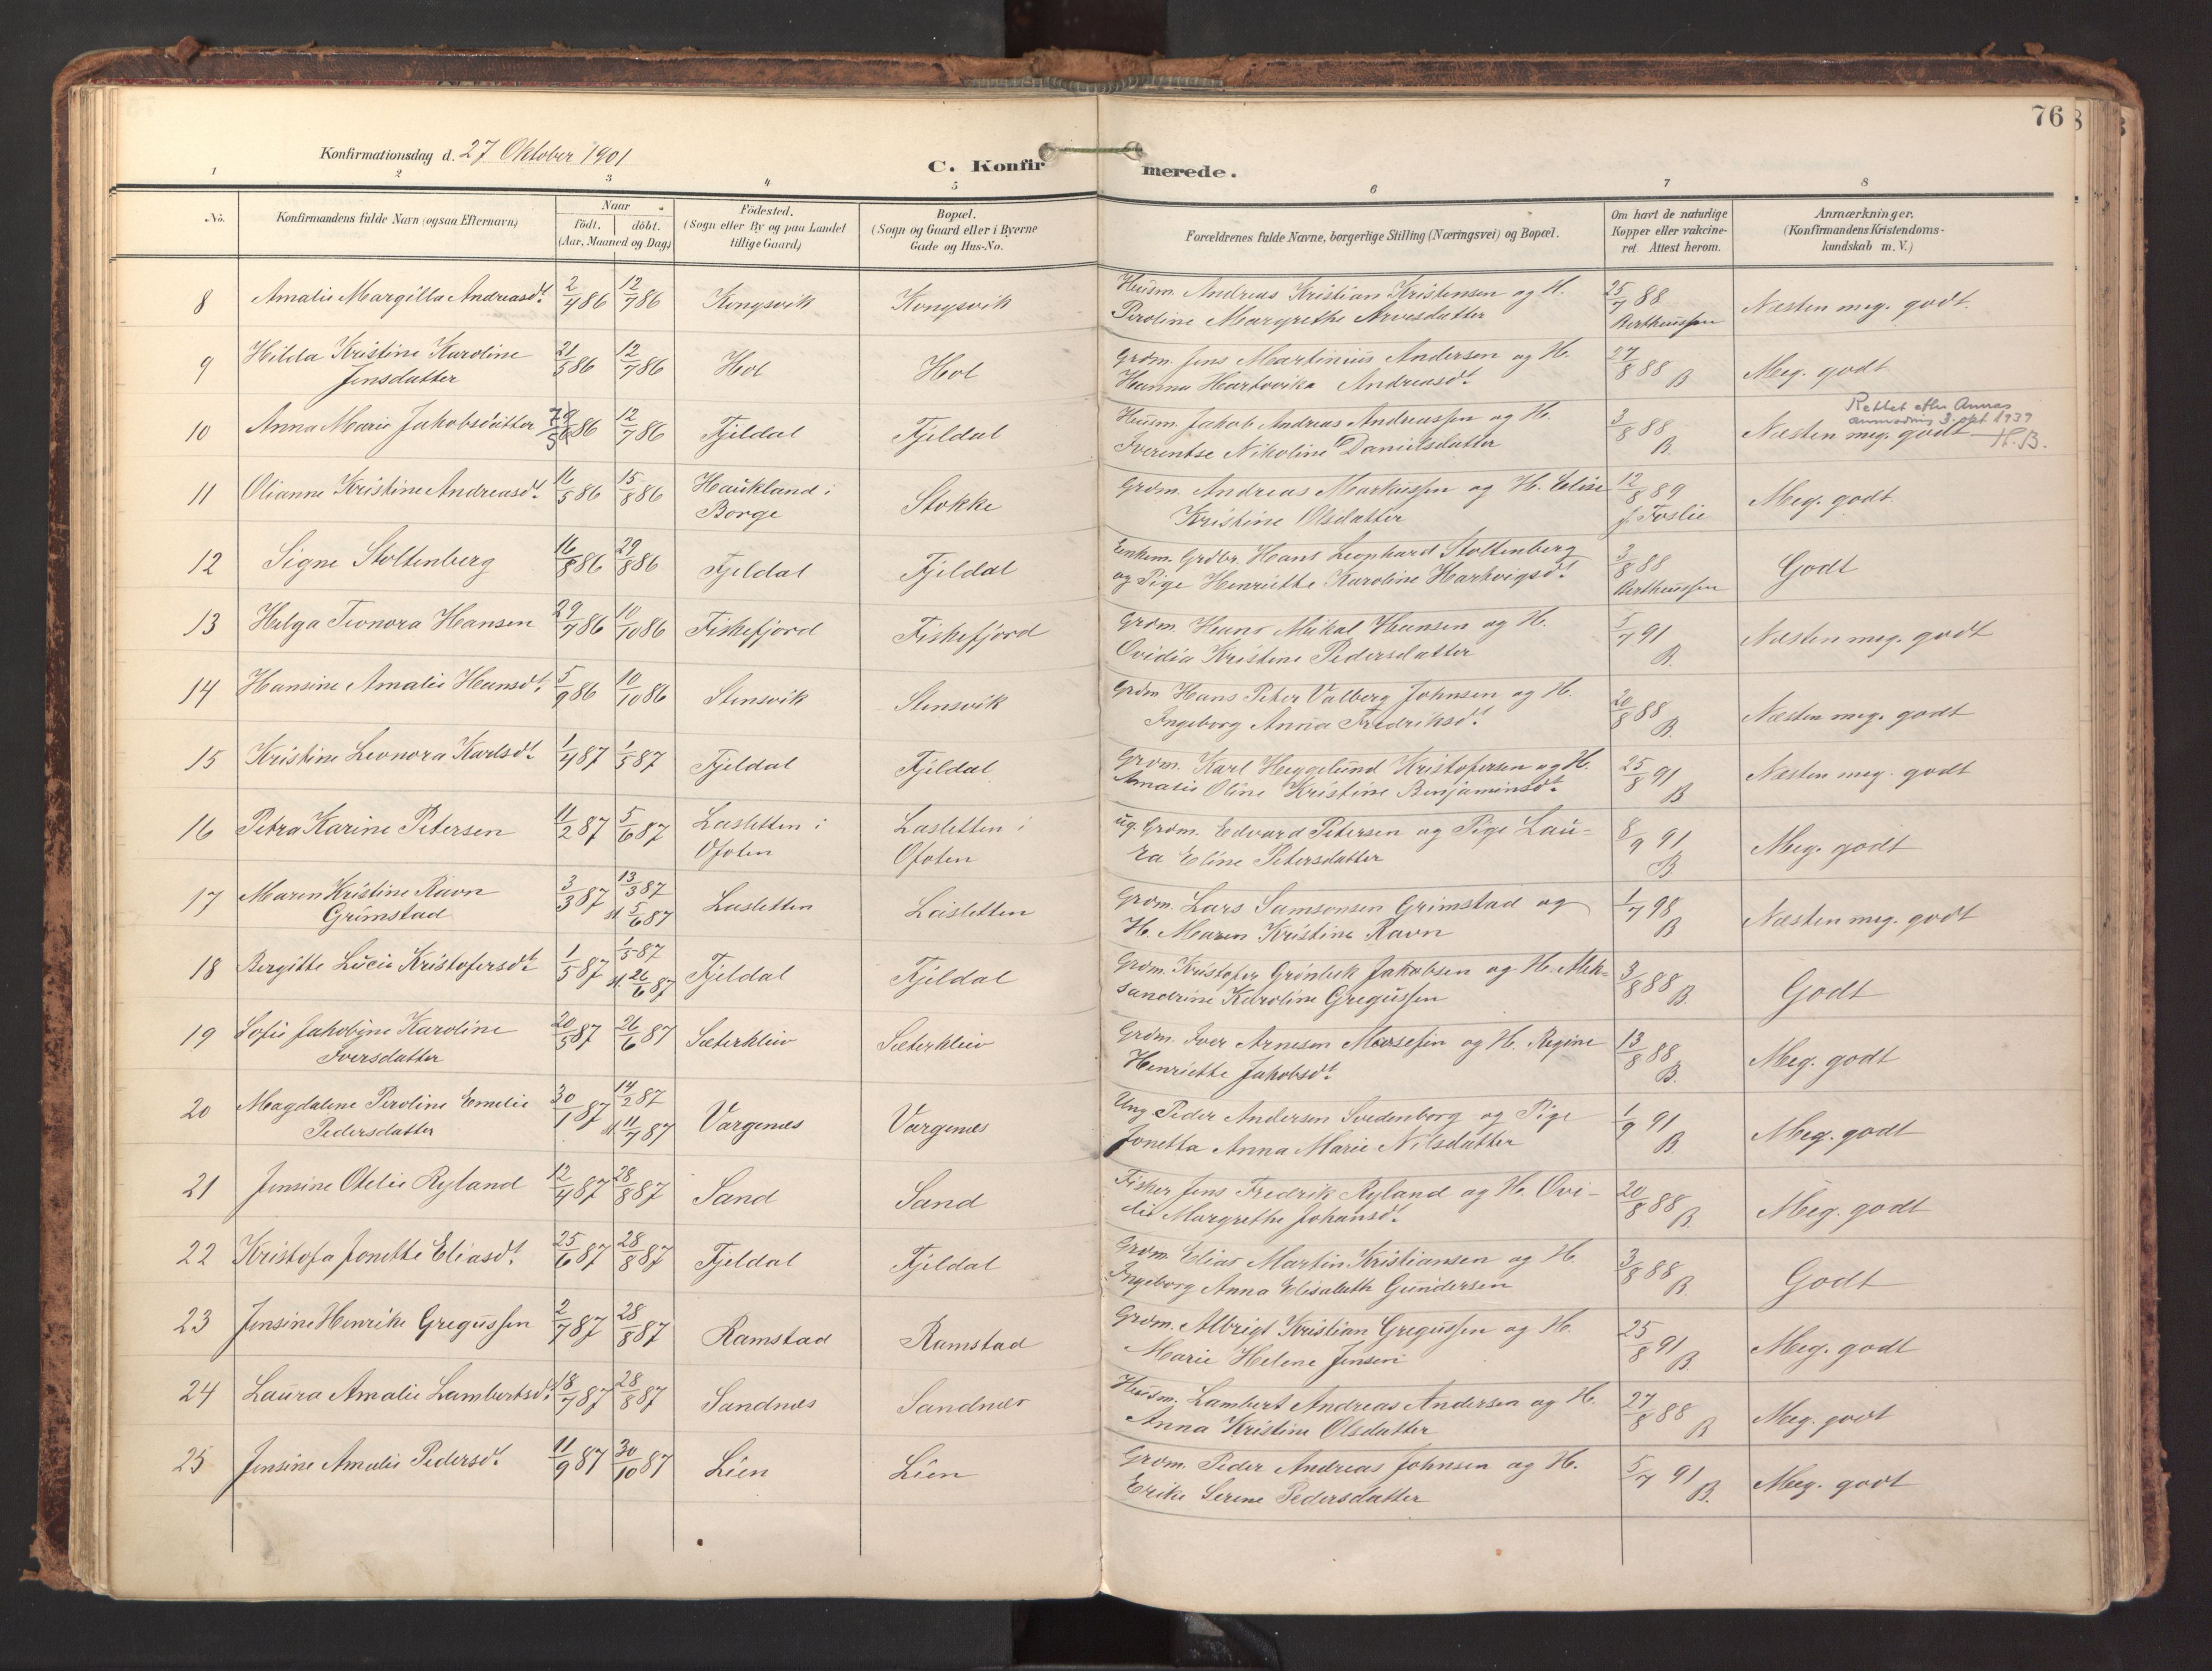 76
Konfirmationsdag d. 27 Oktober 1901
C. Konfirmerede.
1 2 3 4 5 6 7 8
No.
Konfirmandens fulde Navn (ogsaa Efternavn)
Naar
födt. döbt.
(Aar, Maaned og Dag)
Födested.
(Sogn eller By og paa Landet
tillige Gaard)
Bopæl.
(Sogn og Gaard eller i Byerne
Gade og Hus-No.
Forældrenes fulde Navne, borgerlige Stilling (Næringsvei) og Bopæl.
Om havt de naturlige
Kopper eller vakcine-
ret Attest herom.
Anmærkninger.
(Konfirmandens Kristendoms-
kundskab m. V.)
8 Amalie Margilla Andreasdt. 2/4 86 12/7 86 Kongsvik Kongsvik
Husm. Andreas Kristian Kristensen og H.
Peroline Margrethe Arvesdatter
25/7 88
Berthussen
Næsten meg. godt.
9 Hilda Kristine Karoline
Jensdatter
21/5 86 12/7 86 Hol Hol
Grdm. Jens Martinius Andersen og H.
Hanna Hartvikka Andreasdt.
27/8 88 B
Meg. godt
10 Anna Marie Jakobsdatter 86 12/7 86 Fjeldal Fjeldal
Husm. Jakob Andreas Andreassen og H.
Iverentse Nikoline Danielsdatter
3/8 88
B.
Rettet efter Annas
anmodning 3. okt 1939
Næsten meg. godt H.B.
11 Olianne Kristine Andreasdt. 16/5 86 15/8 86 Haukland i
Borge
Stokke
Grdm. Andreas Markussen og H. Elise
Kristine Olsdatter
12/8 89
f. Foslie
Meg. godt
12 Signe Stoltenberg 16/8 86 29/8 86 Fjeldal Fjeldal
Enkem. Grdbr. Hans Leonhard Stoltenberg
og Pige Henriette Karoline Hartvigsdt.
3/8 88
Berthussen
Godt
13 Helga Leonora Hansen 29/7 86 10/10 86 Fiskefjord Fiskefjord
Grdm. Hans Mikal Hansen og H.
Ovidia Kristine Pedersdatter
5/7 91
B.
Næsten meg. godt
14 Hansine Amalie Hansdt. 5/9 86 10/10 86 Stensvik Stensvik
Grdm. Hans Peter Valberg Johnsen og H.
Ingeborg Anna Fredriksdt.
20/8 88
B.
Næsten meg. godt
15 Kristine Leonora Karlsdt. 1/4 87 1/5 87 Fjeldal Fjeldal
Grdm. Karl Heggelund Kristofersen og H.
Amalie Oline Kristine Benjaminsdt.
25/8 91
B
Næsten meg. godt
16 Petra Karine Petersen 11/2 87 5/6 87 Lasletten i
Ofoten
Lasletten i
Ofoten
ug. Grdm. Edvard Petersen og Pige Lau-
ra Eline Petersdatter
8/9 91
B
Meg. godt
17 Maren Kristine Ravn
Grimstad
3/3 87 13/3 87
st. 5/6 87
Lasletten Lasletten
Grdm. Lars Samsonsen Grimstad og
H. Maren Kristine Ravn
1/7 98
B
Næsten meg. godt
18 Bergitte Lucie Kristofersdt. 1/5 87 1/5 87
st. 26/6 87
Fjeldal Fjeldal
Grdm. Kristofer Grönbek Jakobsen og H. Alek-
sandrine Karoline Gregussen
3/8 88
B.
Godt
19 Sofie Jakobine Karoline
Iversdatter
20/5 87 26/6 87 Sæterkleiv Sæterkleiv
Grdm. Iver Arnesen og H. Regine
Henriette Jakobsdt.
13/8 88
B.
Meg. godt
20 Magdalene Peroline Emelie
Pedersdatter
30/1 87 14/2 87
st. 11/7 87
Vargenæs Vargenæs
Ung Peder Andersen Svedenborg og Pige
Jonetta Anna Marie Nilsdatter
1/9 91
B.
Meg. godt
21 Jensine Otelie Ryland 12/4 87 28/8 87 Sand Sand
Fisker Jens Fredrik Ryland og H. Ovi-
die Margrethe Johansdt.
20/8 88
B.
Meg. godt
22 Kristofa Jonette Eliasdt. 25/6 87 28/8 87 Fjeldal Fjeldal
Grdm. Elias Martin Kristiansen og H.
Ingeborg Anna Elisabeth Gundersen
3/8 88
B.
Godt
23 Jensine Henrike Gregussen 2/7 87 28/8 87 Ramstad Ramstad
Grdm. Albrigt Kristian Gregussen og H.
Marie Helene Jensen
25/8 91
B.
Meg. godt
24 Laura Amalie Lambertsdt. 18/7 87 28/8 87 Sandnæs Sandnæs
Husm. Lambert Andreas Andersen og H.
Anna Kristine Olsdatter
27/8 88
B
Meg. godt
25 Jensine Amalie Pedersdt. 11/9 87 30/10 87 Lien Lien
Grdm. Peder Andreas Johnsen og H.
Erike Serene Pedersdatter
5/7 91
B.
Meg. godt